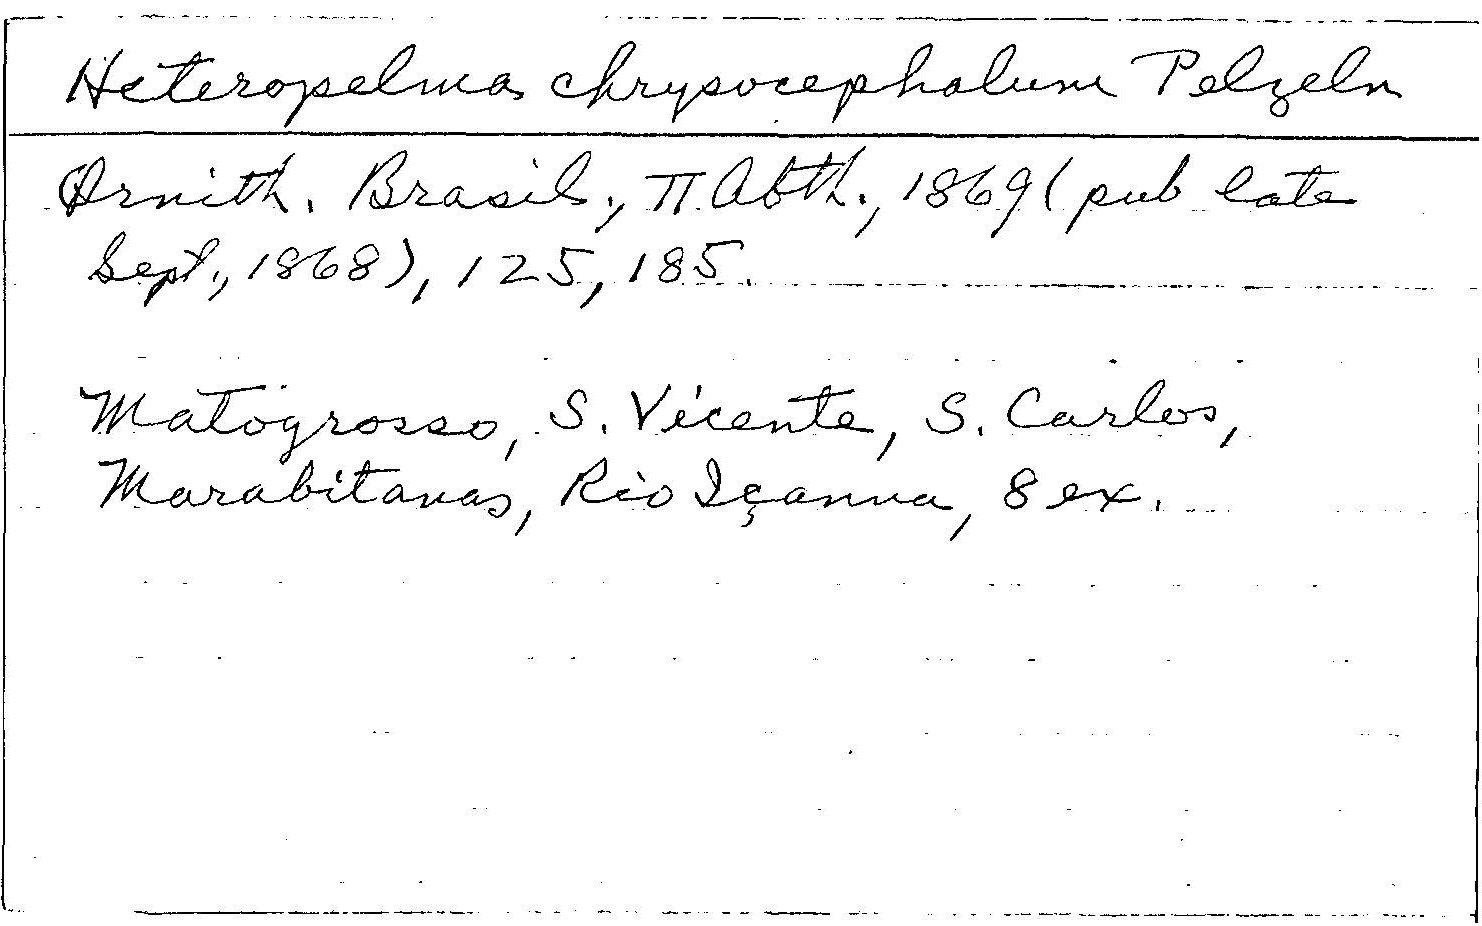 Heteropelma chrysocephalum Pelzeln
Ornith. Brasil., II Abth., 1869 (pub late
Sept., 1868), 125, 185.
Matogrosso, S. Vicente, S. Carlos,
Marabitanas, Rio Içanna, 8 ex.